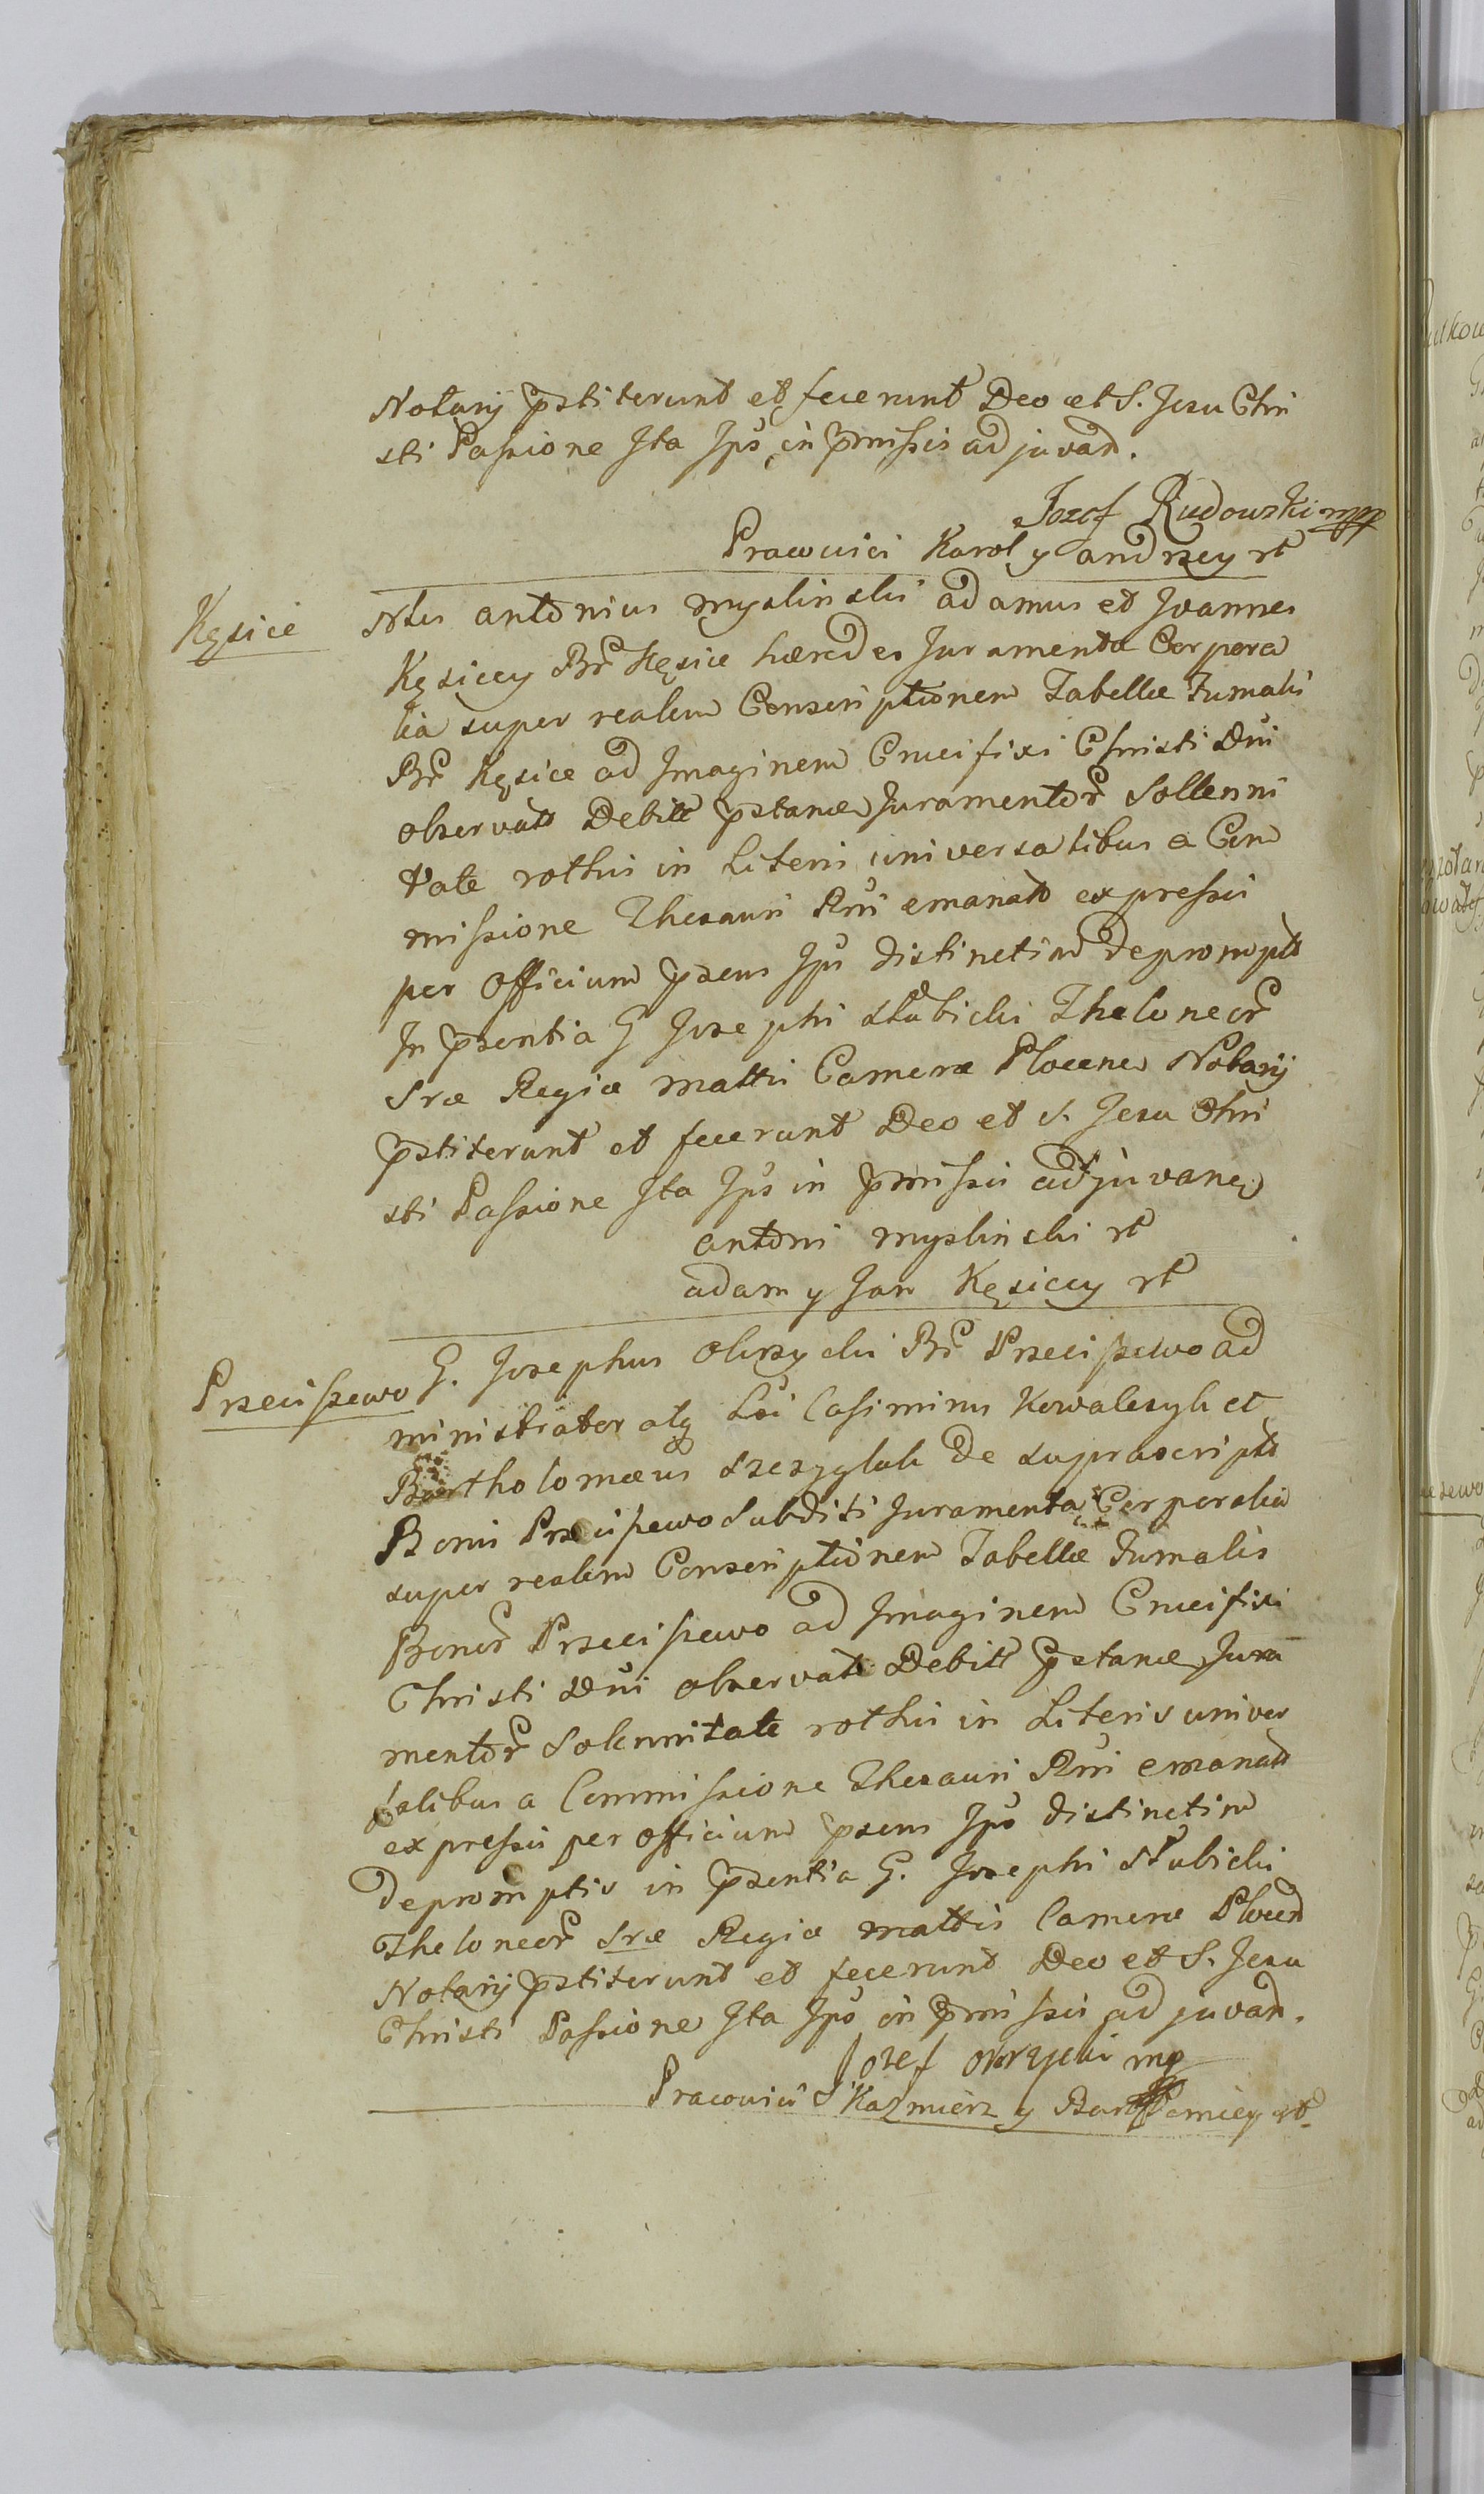 Notarij pstiterunt et fecerunt Deo et S. Jesu Chri
sti Passione Ita Ips in pmissis adjuvan.
Jozef Rudowski mpp
Pracowici Karol y andrzey rt
Kęsice
Nles antonius myslinski adamus et Joannes
Kęsiccy Br Kęsice hæredes Juramenta Corpora
lia super realem Conscriptionem Tabellæ Fumalis
Br Kęsice ad Imaginem Crucifixi Christi Dni
observata Debite pstandi Juramentor Sollenni
tate rothis in Literis universalibus a Com
missione Thesauri Rni emanatis expressis
per Officium psens Ips distinctim depromptis
In psentia G Josephi stubicki Theloneor
Sræ Regiæ mattis Cameræ Plocens Notarij
pstiterunt et fecerunt Deo et S. Jesu Chri
sti Passione Ita Ips in pmissis adjuvane
antoni myslinski rt
adam y Jan Kęsiccy rt
Przeciszewo
G. Josephus Okrzycki Br Przeciszewo ad
ministrator atq Lsi Casimirus Kowalczyk et
Bartholomæus Szczyglak de suprascriptis
Bonis Przeciszewo Subditi Juramenta Corporalia
super realem Conscriptionem Tabellæ Fumalis
Bonor Przeciszewo ad Imaginem Crucifixi
Christi Dni observata Debite pstandi Jura
mentor Solennitate rothis in Literis univer
salibus a Commissione Thesauri Rni emanatis
expressis per officium psens Ips distinctim
depromptis in psentia G. Josephi Stubicki
Theloneor Sræ Regiæ mattis Cameræ Plocen
Notarij pstiterunt et fecerunt Deo et S. Jesu
Christi Passione Ita Ips in pmissis adjuvan.
Jozef okrzycki mp
Pracowici Kazmierz y Bartłomiey rt